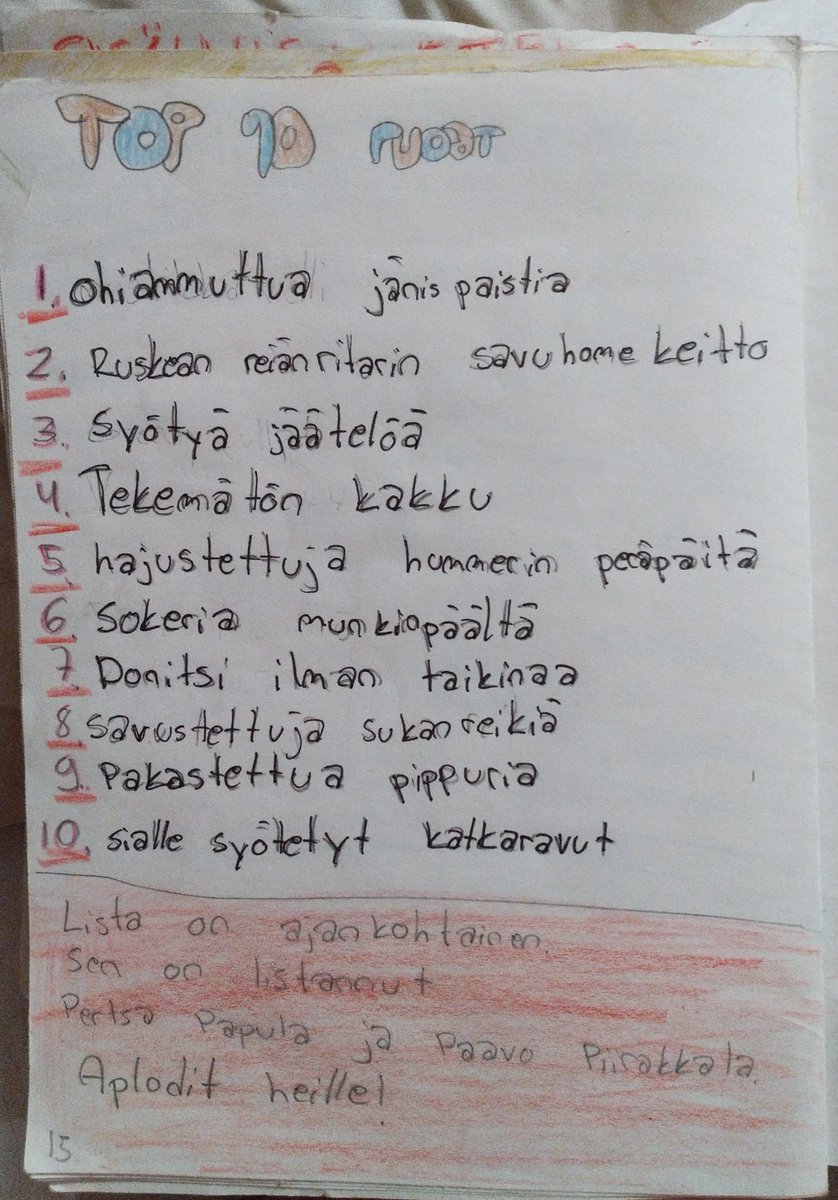 TOP 10 RUOAT
1. ohiammuttua jänispaistia
2. Ruskean reiänritarin savuhomekeitto
3. Syötyä jäätelöä
4. Tekemätön kakku
5. hajustettuja hummerin peräpäitä
6. Sokeria munkinpäältä
7. Donitsi ilman taikinaa
8 Savustettuja sukanreikiä
9. Pakastettua pippuria
10. sialle syötetyt katkaravut
Lista on ajankohtainen.
Sen on listannut
Pertsa Papula ja Paavo Piirakkala.
Aplodit heille!
15